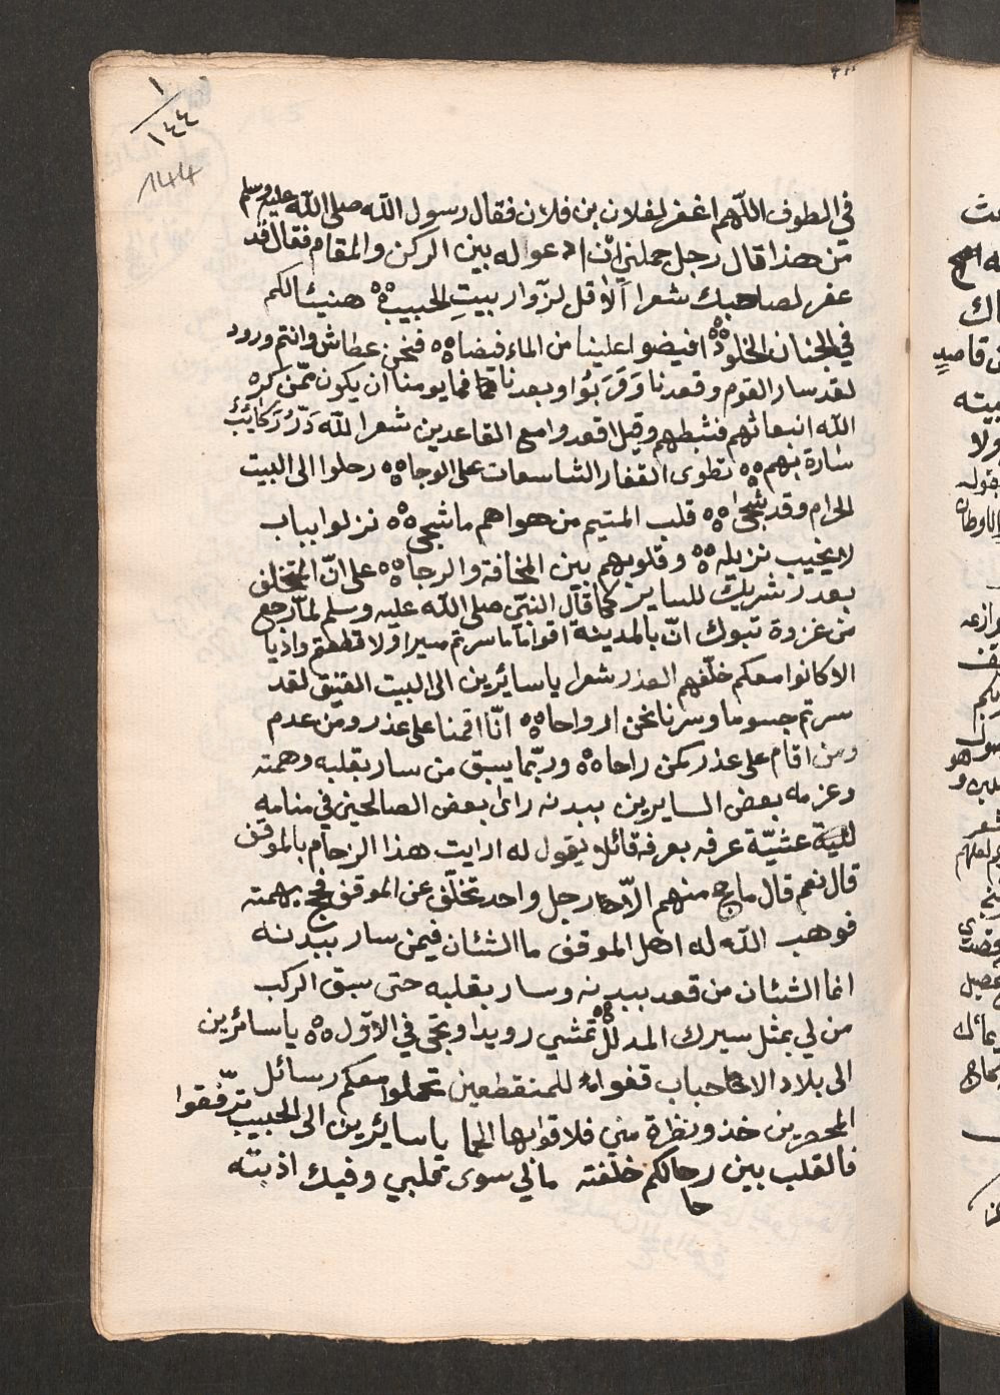 ١
١٤٤
144
في الطوف اللّهم اغفر لفلان بن فلان فقال رسول الله صلى الله عليه وسلم
من هذا قال رجل حملني ان ادعو له بين الركن والمقام فقال قد
غفر لصاحبك شعرا الا قل لزوار بيت الحبيب هنيئا لكم
في الجنان الخلود افيضوا علينا من الماء فيضا فنحن عطاش وانتم ورود
لقد سار القوم وقعدنا وقربوا وبعدنا فما يومنا ان يكون ممّن كره
الله انبعاثهم فثبطهم وقيل اقعدوا مع القاعدين شعرا لله درّ ركائب
سارة بهم تطوى القفار الشاسعات على الوجا رحلوا الى البيت
الحرام وقد شجى قلب المتيم من هواهم ما شجى نزلوا بباب
لا يخيب نزيله وقلوبهم بين المخافة والرجا على انّ المتخلف
بعذر شريك للساير كما قال النبيّ صلى الله عليه وسلم لمّا رجع
من غزوة تبوك انّ بالمدينة اقواما ما سرتم سيرا ولا قطعتم واديا
الا كانوا معكم خلّفهم العذر شعرا يا سائرين الى البيت العتيق لقد
سرتم جسوما وسرنا نحن ارواحا انّا اقمنا على عذر ومن عدم
ومن اقام على عذر كمن راحا وربّما يسبق من سار بقلبه وهمته
وعزمه بعض السايرين ببدنه راى بعض الصالحين في منامه
ليلة عشيّة عرفه بعرفه قائلا يقول له ارايت هذا الزحام بالموقف
قال نعم قال ما حج منهم الّا رجل واحد تخلّف عن الموقف فحج بهمته
فوهب الله له اهل الموقف ما الشان فيمن سار ببدنه
انما الشئان من قعد ببدنه وسار بقلبه حتى سبق الركب
من لي بمثل سيرك المدلل تمشي رويدا وتجى في الاوّل يا سائرين
الى بلاد الاحباب قفوا للمنقطعين تحملوا معكم رسائل
المحصرين خذو نظرة مني فلاقوا بها الحما يا سايئرين الى الحبيب ترّفقوا
فالقلب بين رحالكم خلفته مالي سوى قلبي وفيك اذبته
حا